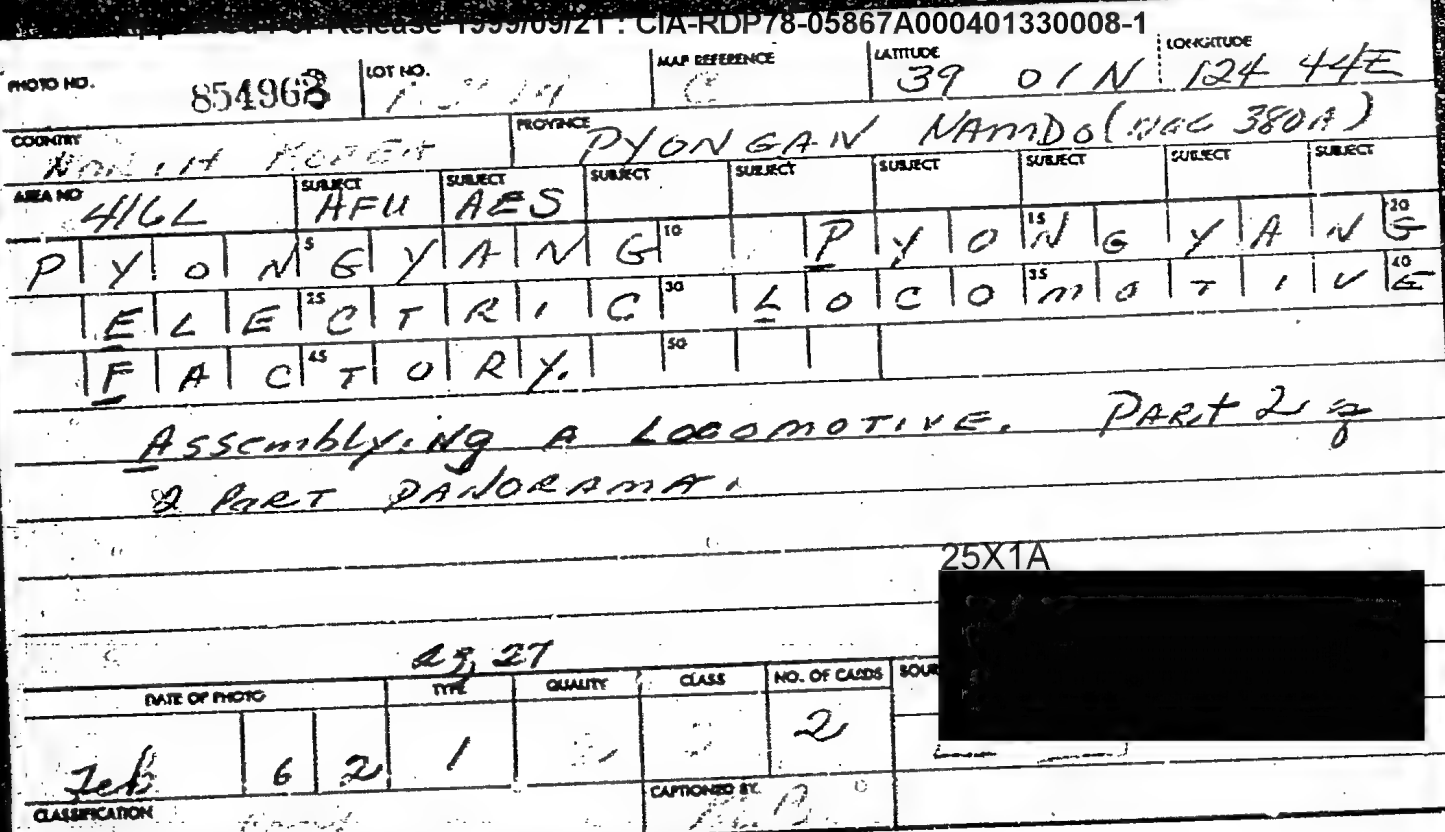 Release 1999/09/21 : CIA-RDP78-05867A000401330008-1
PHOTO NO. 854963 LOT NO. MAP REFERENCE C LATITUDE 39 01N LONGITUDE 124 44E
COUNTRY NORTH KOREA PROVINCE PYONGAN NAMDO (380A)
AREA NO 416L SUBJECT AFU SUBJECT AES SUBJECT SUBJECT SUBJECT SUBJECT SUBJECT SUBJECT
PYONGYANG PYONGYANG
ELECTRIC LOCOMOTIVE
FACTORY.
Assemblying A LOCOMOTIVE. PART 2 of
2 PART PANORAMA.
25X1A
23, 27
DATE OF PHOTO TYPE QUALITY CLASS NO. OF CARDS
Feb 6 2 1 2
CLASSIFICATION CAPTIONED BY.